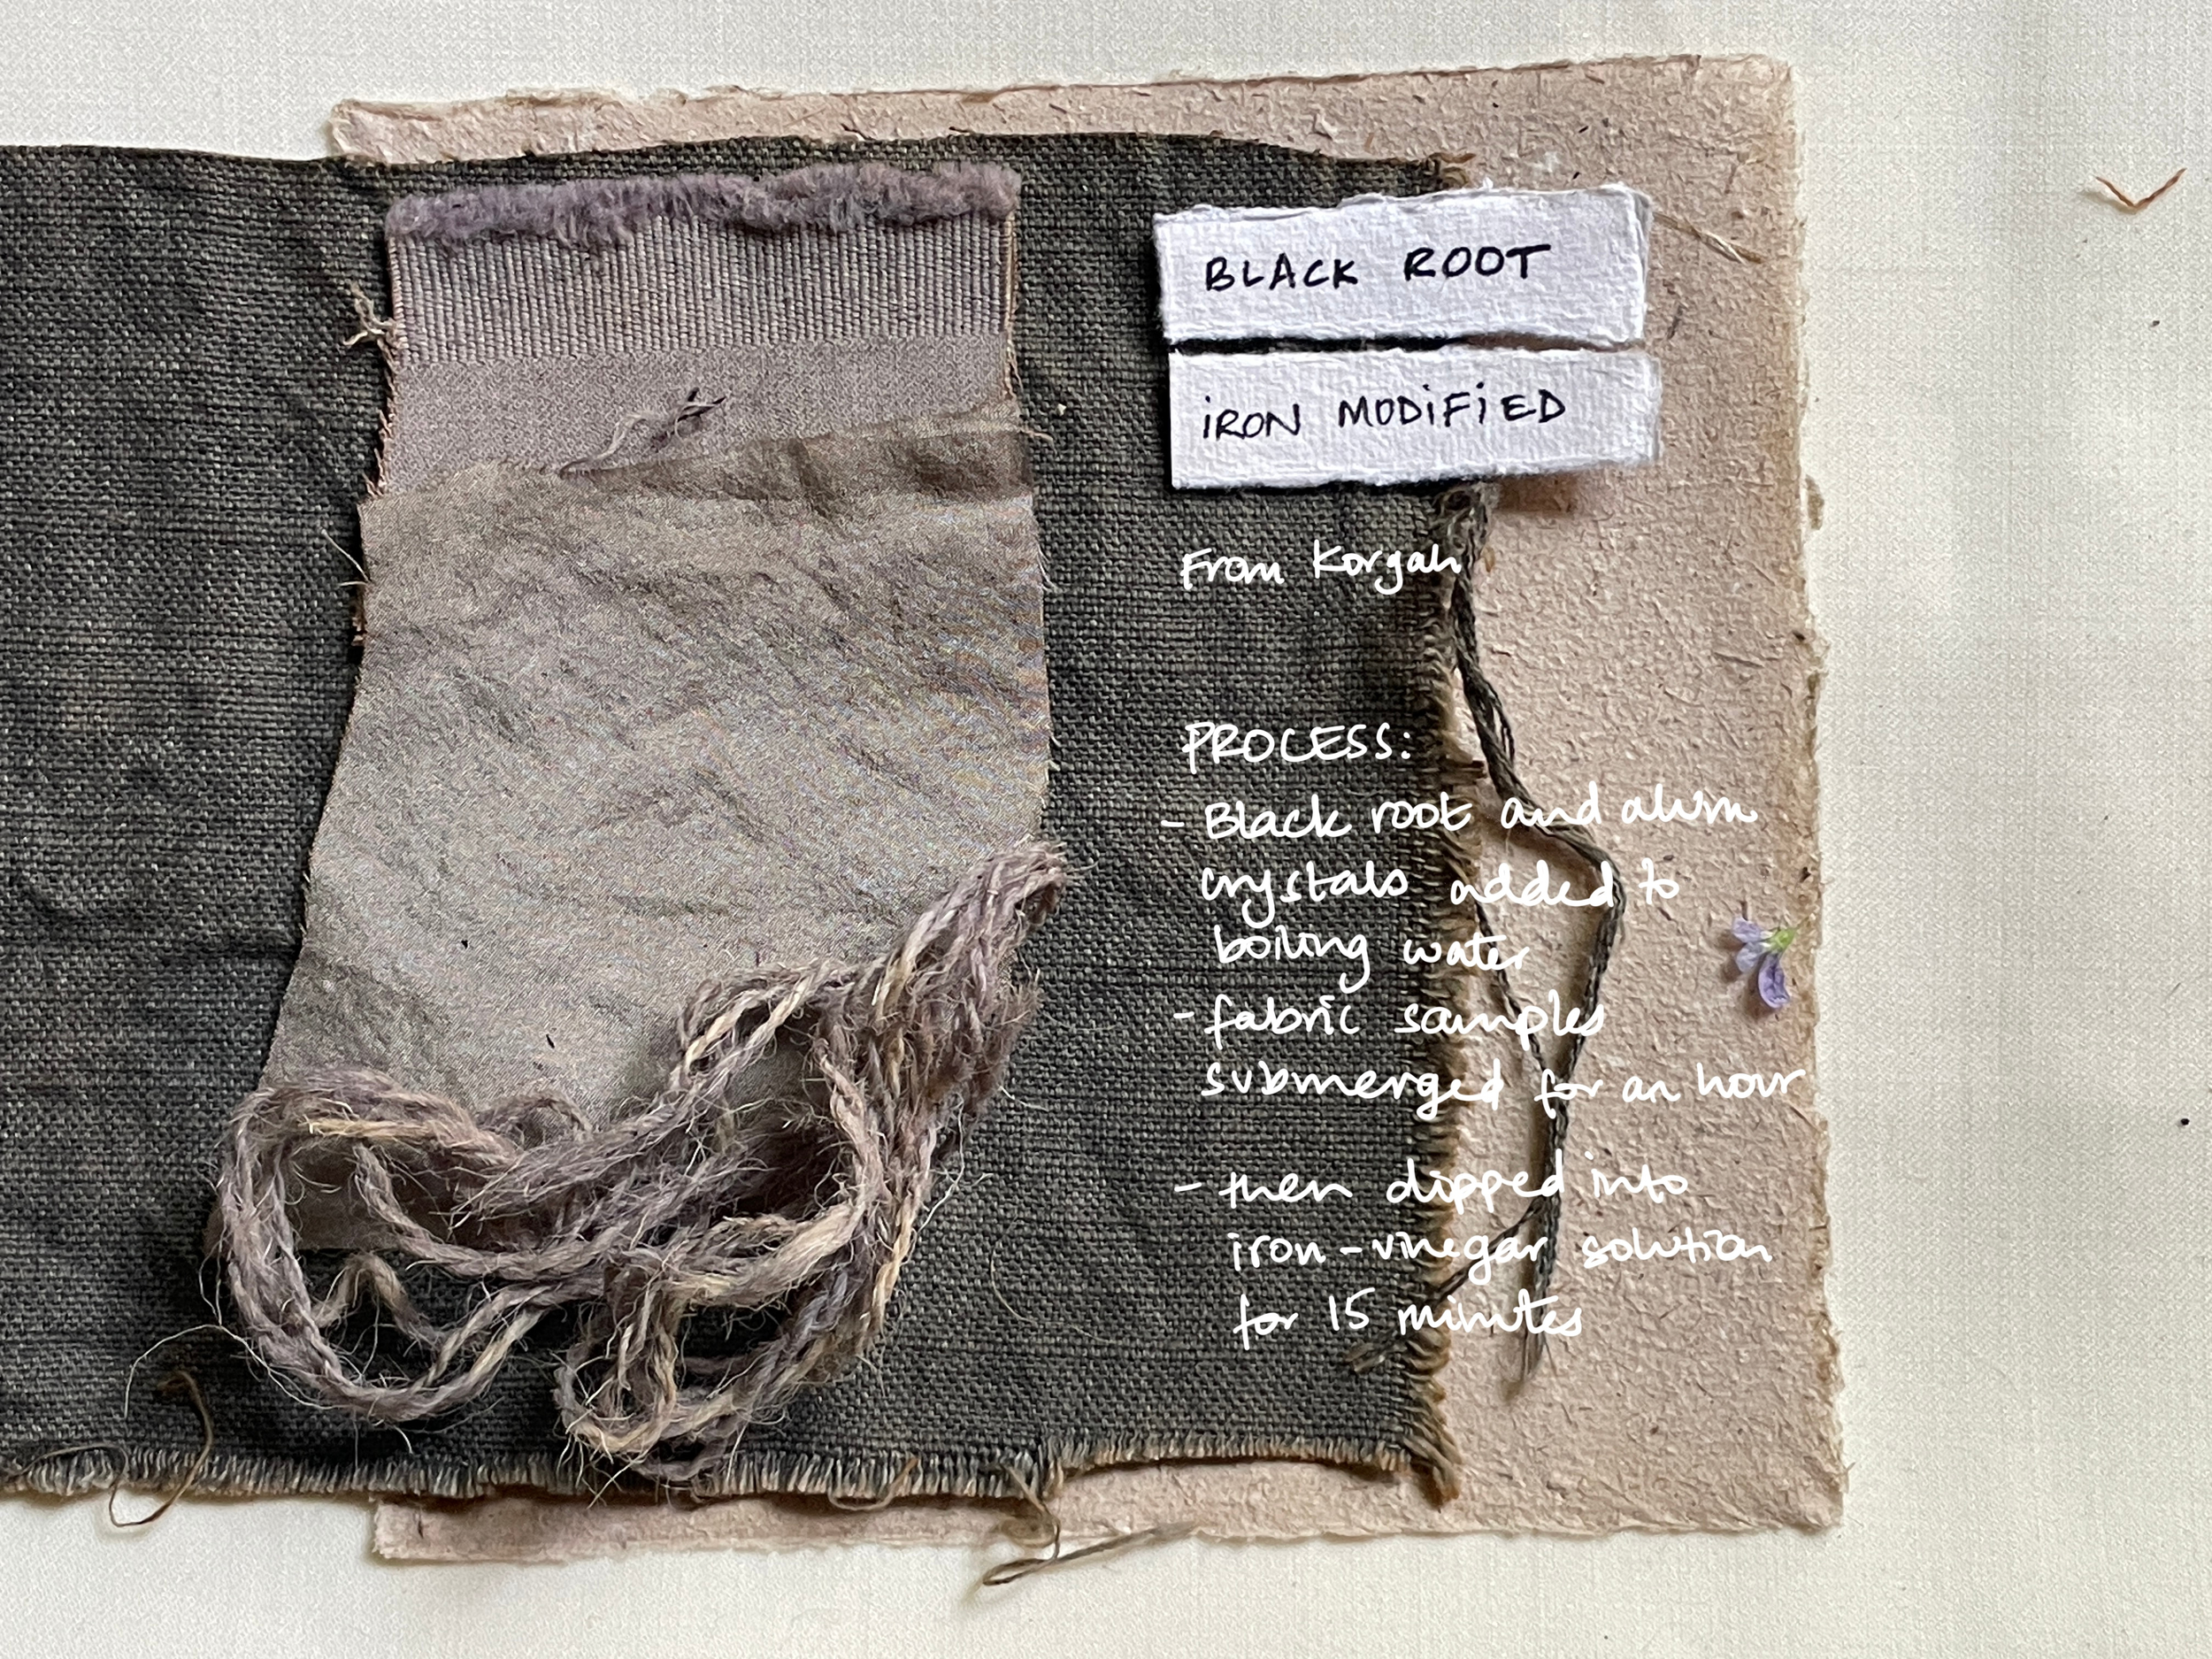 BLACK ROOT
iRON MODiFiED
From Korgah
PROCESS:
- Black root and alum
crystals added to
boiling water
- fabric samples
submerged for an hour
- then dipped into
iron-vinegar solution
for 15 minutes